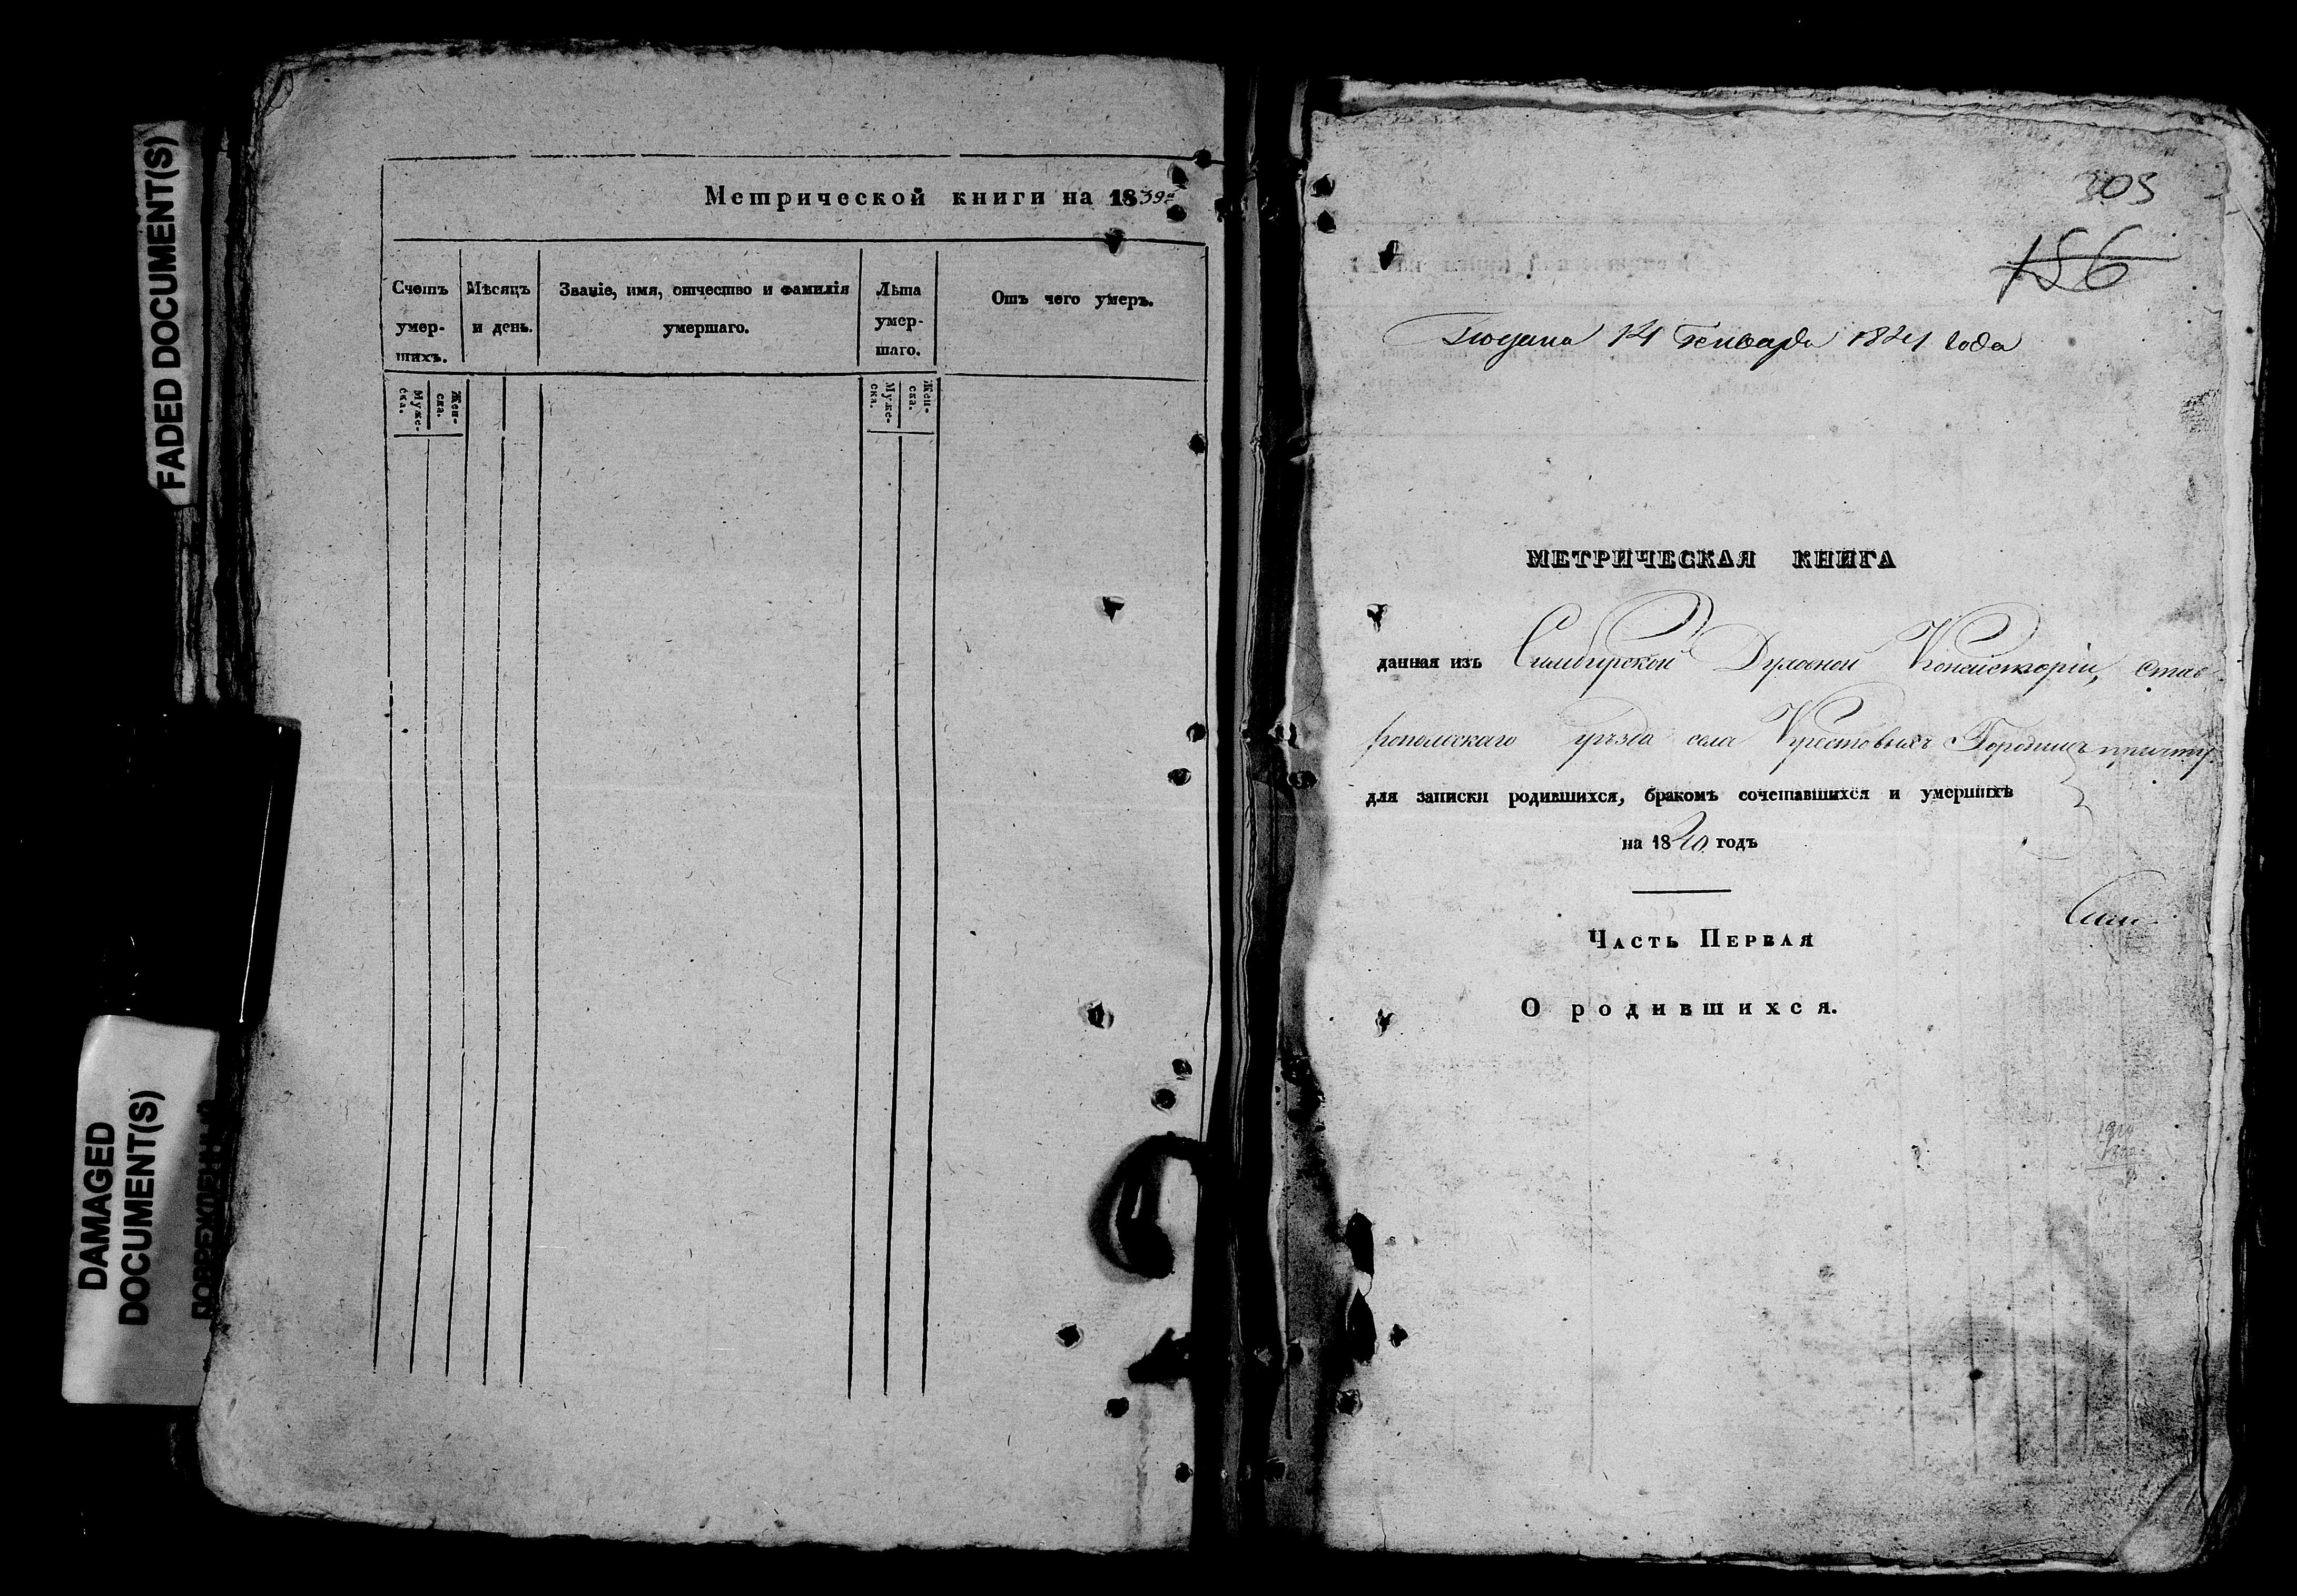 FADED DOCUMENT(S)
DAMAGED
DOCUMENT(S)
Метрической книги на 1839
Счетъ
умер-
шихъ.
Мѣсяцъ
и день.
Званіе, имя, отчество и фамилія
умершаго.
Лѣта
умер-
шаго.
Отъ чего умеръ.
Муже-
ска.
Жен-
ска.
Муже-
ска.
Жен-
ска.
303
156
14 Генваря 1841 года
МЕТРИЧЕСКАЯ КНИГА
данная изъ Симбирской Духовной Консисторіи, Став
ропольскаго уѣзда села Крестовыхъ Городищъ причту
для записки родившихся, бракомъ сочетавшихся и умершихъ
на 1840 годъ
Часть Первая
О родившихся.